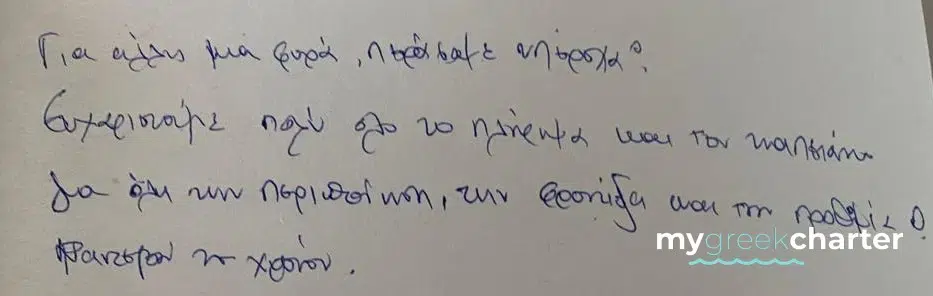 Για αλλη μια φορά, περάσαμε υπέροχα!
Ευχαριστούμε πολύ όλο το πλήρωμα και τον καπετάνιο
για όλη την περιποίηση, την φροντίδα και την προθυμία!
του χρόνου.
mygreekcharter